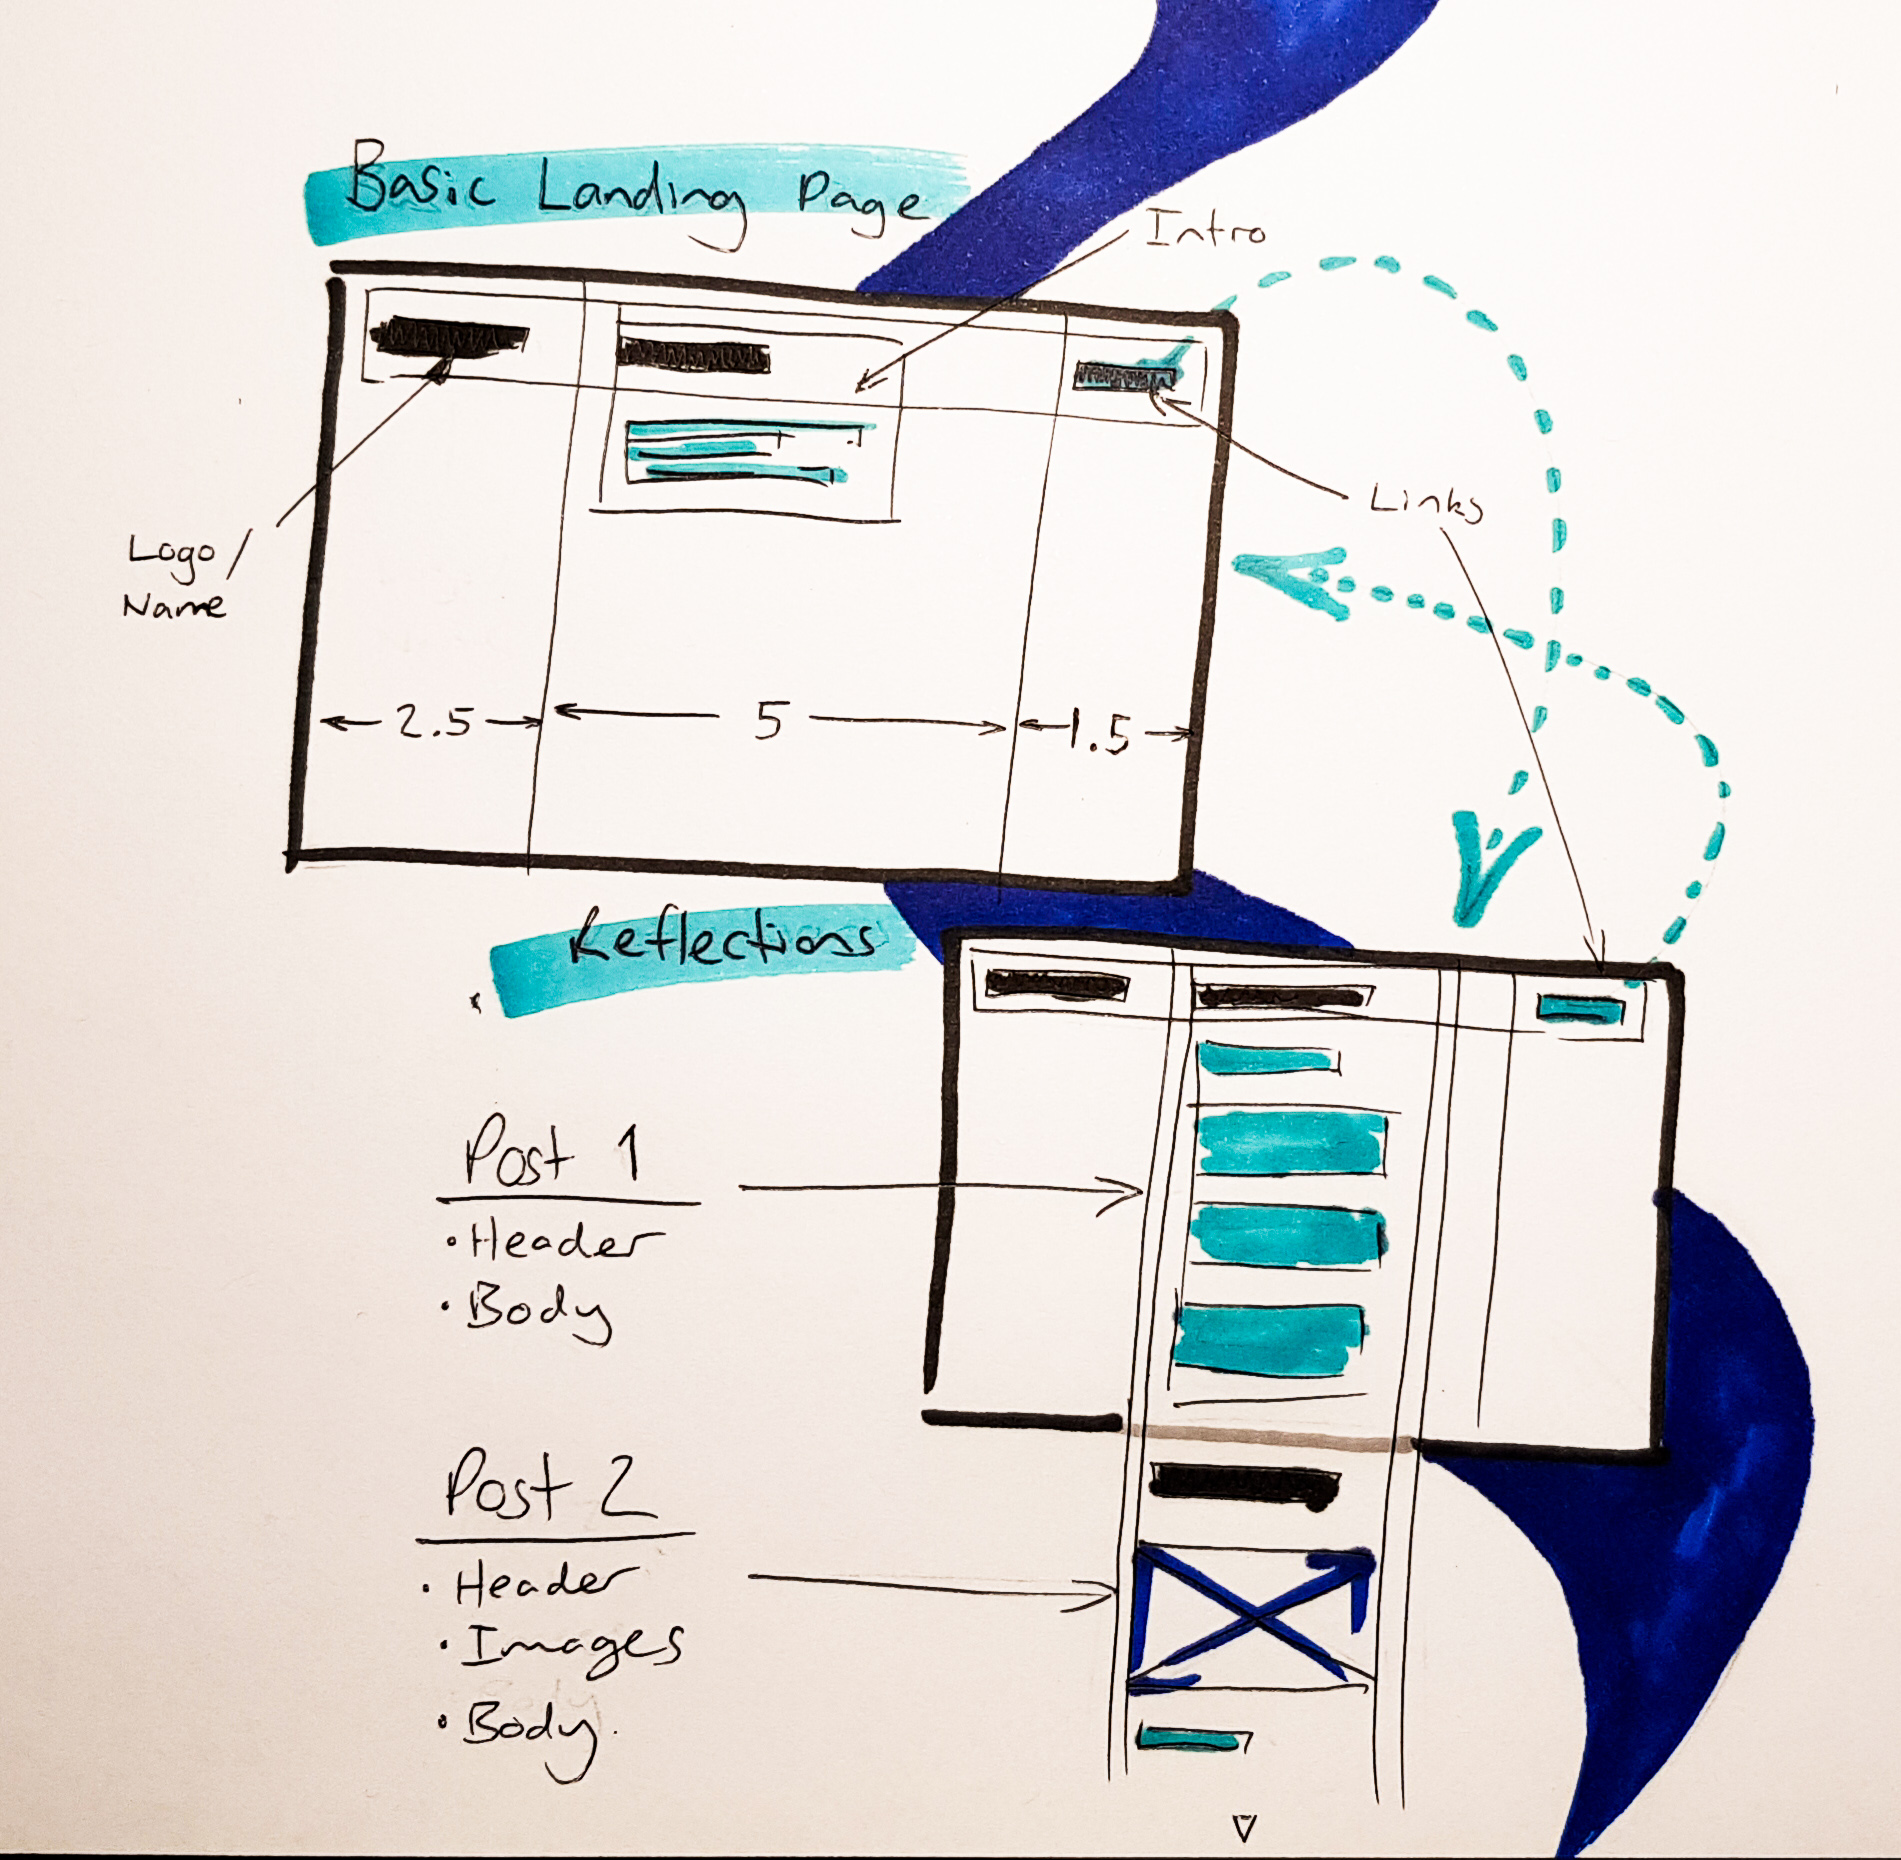 Basic Landing Page
Intro
Links
Logo /
Name
2.5
5
1.5
Reflections
Post 1
• Header
• Body
Post 2
• Header
• Images
• Body.